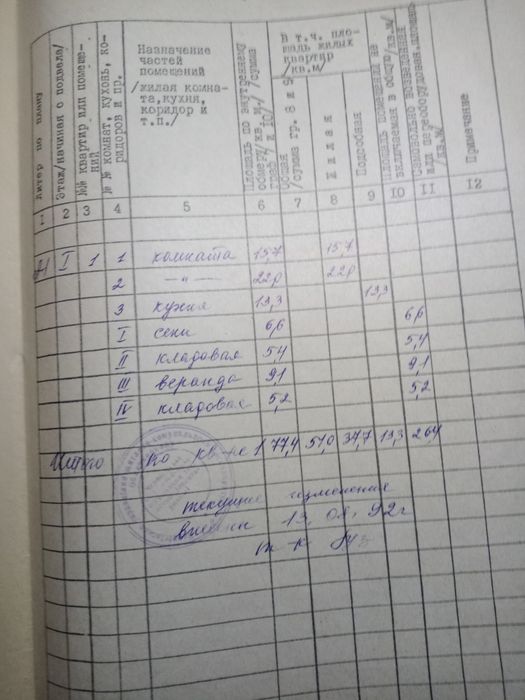 Литер по плану
Этаж/начиная с подвала/
№№ квартир или помеще-
ний
№ № комнат, кухонь, ко-
ридоров и пр.
Назначение
частей
помещений
/жилая комна-
та,кухня,
коридор и
т.п./
Площадь по внутреннему
обмеру/кв.м./ /сумма
граф 7 и 10/
В т.ч. пло-
щадь жилых
квартир
/кв.м/
Общая
/сумма гр. 8 и 9
Жилая
Подсобная
Площадь помещений не
включаемая в общую/кв.м/
Самовольно возведенная
или переоборудованная площадь
/кв.м/
Примечание
1 2 3 4 5 6 7 8 9 10 11 12
I 1 1 комната 15,7 15,7
2 —"— 22,0 22,0
3 кухня 13,3 13,3
I сени 6,6 6,6
II кладовая 5,4 5,4
III веранда 9,1 9,1
IV кладовая 5,2 5,2
Итого по кв-ре 1 77,4 51,0 37,7 13,3 26,4
текущие изменения
внесены 13.
92г